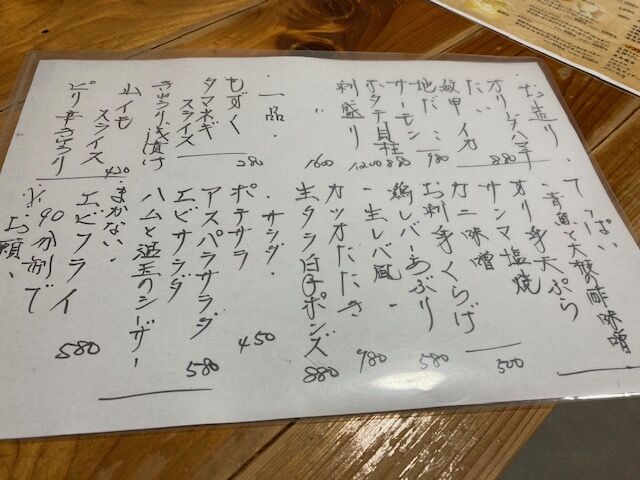 お造り
オリーブハマチ
たい 880
紋甲イカ
地だこ 980
サーモン 880
ホタテ貝柱 1200
刺盛り 1600
〃
一品
もずく 280
タマネギ
スライス
きゅうり浅漬け
山イモ
スライス
ピリ辛きゅうり 420
てっぱい
青魚と大根の酢味噌
オリ身天ぷら
サンマ塩焼 500
カニ味噌
お刺身くらげ
鶏レバーあぶり 580
生レバ風
カツオたたき 980
生タラ白子ポンズ 880
サラダ
ポテサラ 450
アスパラサラダ
エビサラダ 580
ハムと温玉のシーザー
まかない
エビフライ 580
90分制で
お願い